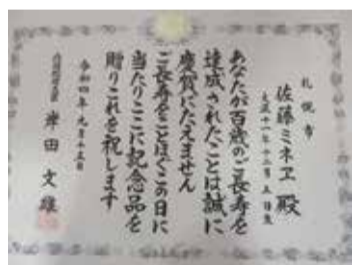 札幌市
佐藤ミネヱ殿
あなたが百歳のご長寿を
達成されたことは誠に
慶賀にたえません
ご長寿をことほぐこの日に
当たりここに記念品を
贈りこれを祝します
令和四年九月十五日
内閣総理大臣 岸田文雄